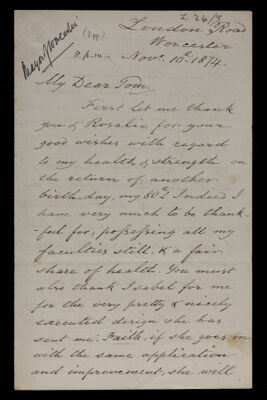 £24/3
London Road
Worcester
(2pp.)
8. p.m. — Nov.r 10th 1874.
My Dear Tom,
First let me thank
you & Rosalie for your
good wishes with regard
to my health & strength on
the return of another
birth-day, my 80th Indeed I
have very much to be thank
-ful for, possessing all my
faculties still, & a fair
share of health. You must
also thank Isabel for me
for the very pretty & nicely
executed design she has
sent me. Faith, if she goes on
with the same application
and improvement, she will